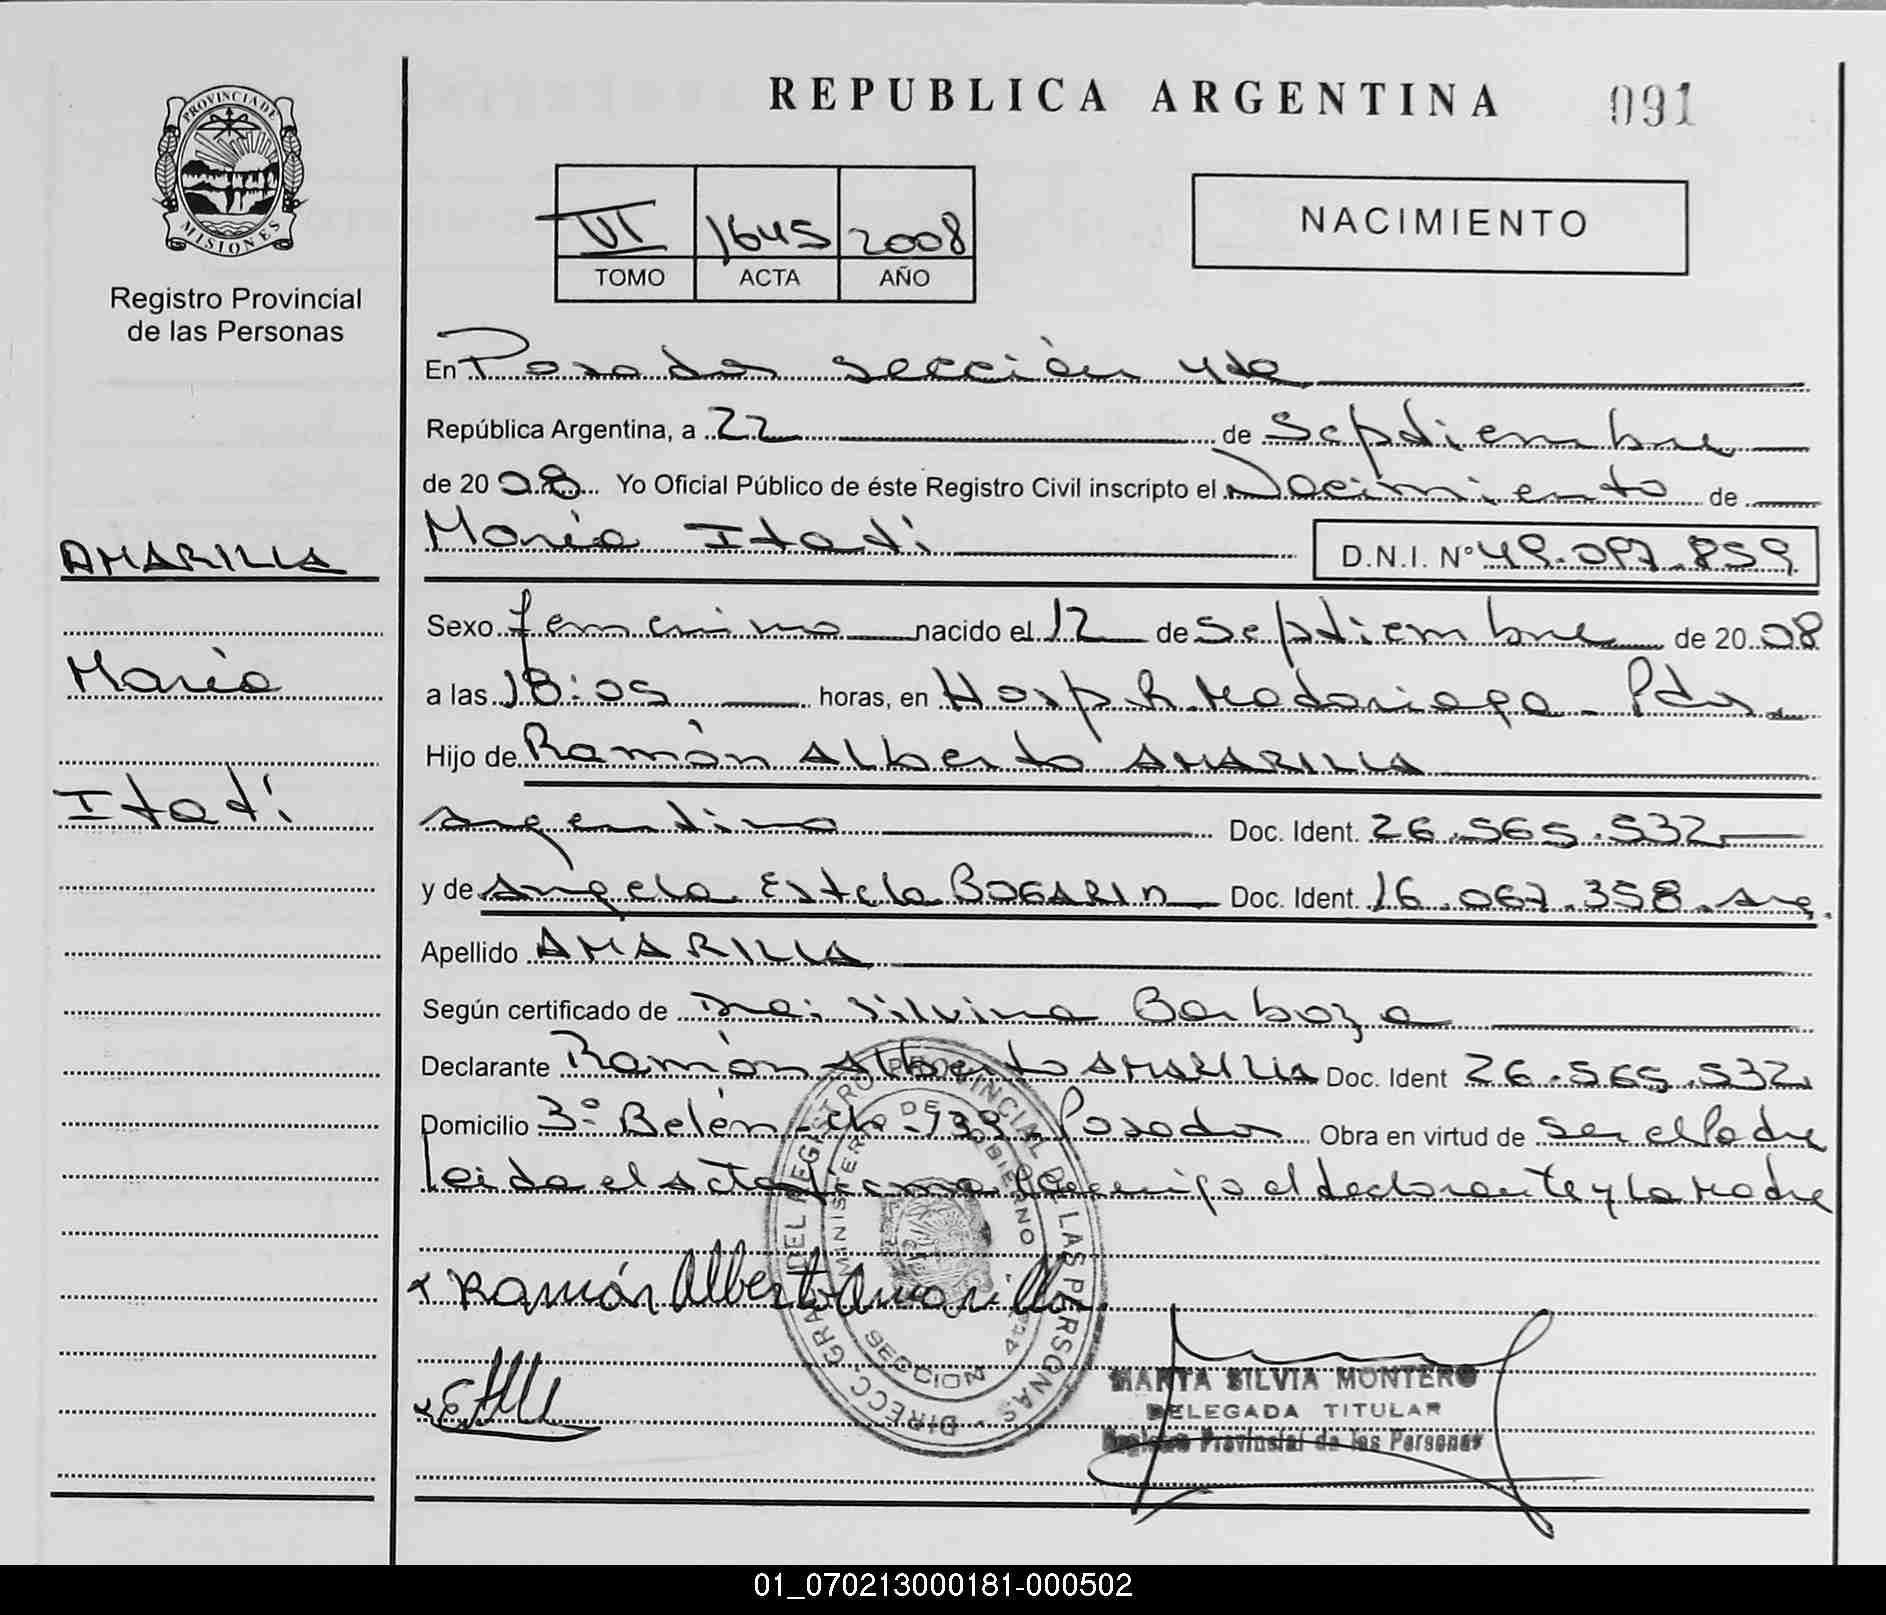 REPUBLICA ARGENTINA 091
PROVINCIA DE
MISIONES
Registro Provincial
de las Personas
VI 1645 2008
TOMO ACTA AÑO
NACIMIENTO
En Posadas sección 4ta
República Argentina, a 22 de Septiembre
de 2008 Yo Oficial Público de éste Registro Civil inscripto el Nacimiento de
María Itatí D.N.I. N° 49.097.859
AMARILLA
María
Itatí
Sexo femenino nacido el 12 de Septiembre de 2008
a las 18:05 horas, en Hosp. R. Madariaga - Pdas.
Hijo de Ramón Alberto AMARILLA
argentino Doc. Ident. 26.565.532
y de Angela Estela BOGARIN Doc. Ident. 16.067.358. Arg.
Apellido AMARILLA
Según certificado de Dra: Silvina Barboza
Declarante Ramón Alberto AMARILLA Doc. Ident 26.565.532
Domicilio 3º Belén - ch. - 139 - Posadas Obra en virtud de ser el Padre
leida el acta firma conmigo el declarante y la Madre
x Ramón Alberto Amarilla
DIRECC. GRAL. DEL REGISTRO PROVINCIAL DE LAS PERSONAS -
MINISTERIO DE GOBIERNO
SECCION 4ta
MARTA SILVIA MONTERO
DELEGADA TITULAR
Registro Provincial de las Personas
01_070213000181-000502